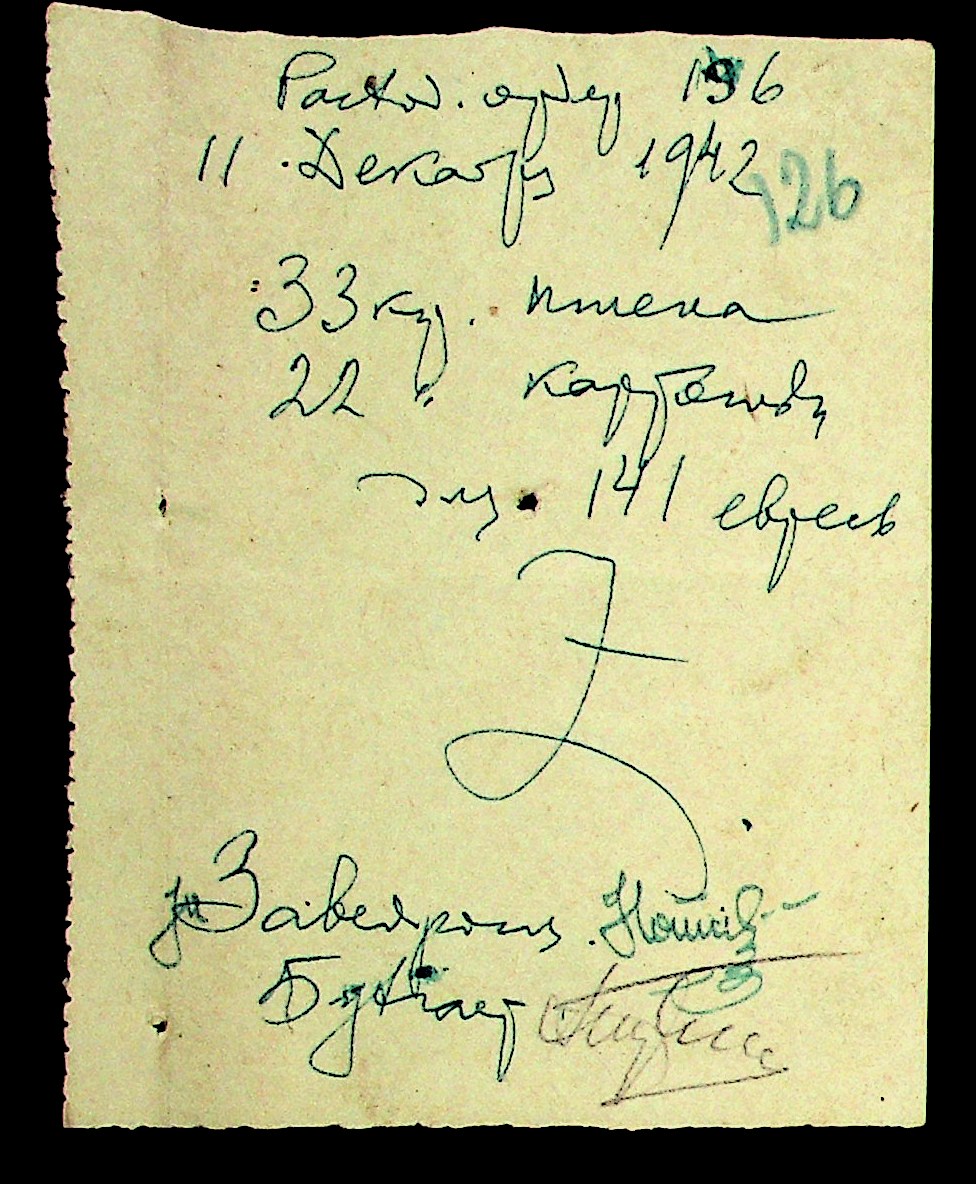 Расход. ордер 196
11 Декабря 1942
126
33 кг. пшена
22 " картошки
для 141 евреев
Заведующ.
Бухгалтер